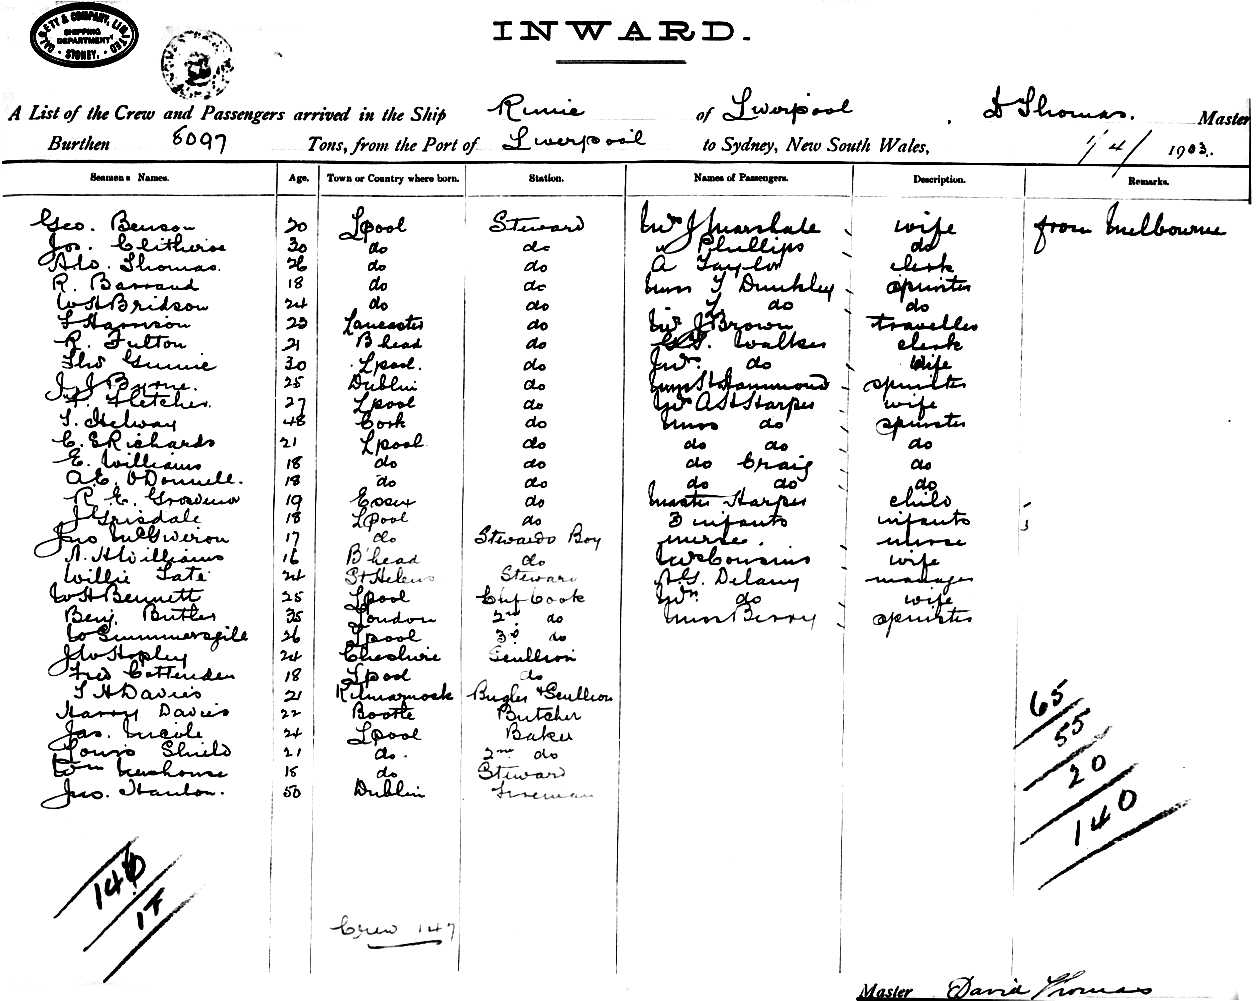 DALGETY & COMPANY, LIMITED
SHIPPING DEPARTMENT
SYDNEY.
INWARD.
A List of the Crew and Passengers arrived in the Ship Runic of Liverpool, D Thomas. Master
Burthen 8097 Tons, from the Port of Liverpool to Sydney, New South Wales, 1/4/ 1903.
Seamens Names. Age. Town or Country where born. Station. Names of Passengers. Description. Remarks.
Geo. Benson 20 Lpool Steward Mrs J Marshall wife from Melbourne
Jos. Clitheroe 30 do do " Phillips do
Ado. Thomas. 26 do do A Taylor clerk
R. Barrand 18 do do Miss T Dunkley spinster
W H Bridson 24 do do " L do do
T Harrison 23 Lancaster do Mr J Brown traveller
R. Fulton 21 B head do Walker clerk
Thos Gunnie 30 Lpool. do Mrs. do wife
J J Byrne. 25 Dublin do Miss Hammond spinster
Fletcher. 27 Lpool do Mrs A H Harper wife
T. Helway 48 Cork do Miss do spinster
C. E Richards 21 Lpool do do do do
E. Williams 18 do do do Craig do
A. C. O'Donnell. 18 do do do do do
R. E. Grosvenor 19 Essex do Master Harper child
J Grisdale 18 Lpool do 3 infants infants 3
Jno McGiveron 17 do Stewards Boy nurse. nurse
A. H Williams 16 B'head do Mrs Cousins wife
Willie Tate 24 St Helens Steward A. G. Delany manager
W H Bennett 25 Lpool Chf Cook Mrs. do wife
Benj. Butler 35 London 2nd do Miss Berry spinster
W Summersgill 26 Lpool 3rd do
J W Hopley 24 Cheshire Scullion
Fred Cottenden 18 Lpool do
T H Davies 21 Kilmarnock Bugler & Scullion
Harry Davies 22 Bootle Butcher
Jas. Nicole 24 Lpool Baker
Louis Shield 21 do. 2nd do
Wm Newhouse 18 do Steward
Jno. Hanlon. 50 Dublin Fireman
65
55
20
140
146
17
Crew 147
Master David Thomas